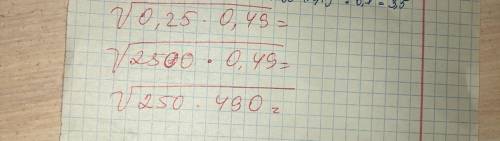 √0,25 · 0,49 =
√2500 · 0,49 =
√250 · 490 =